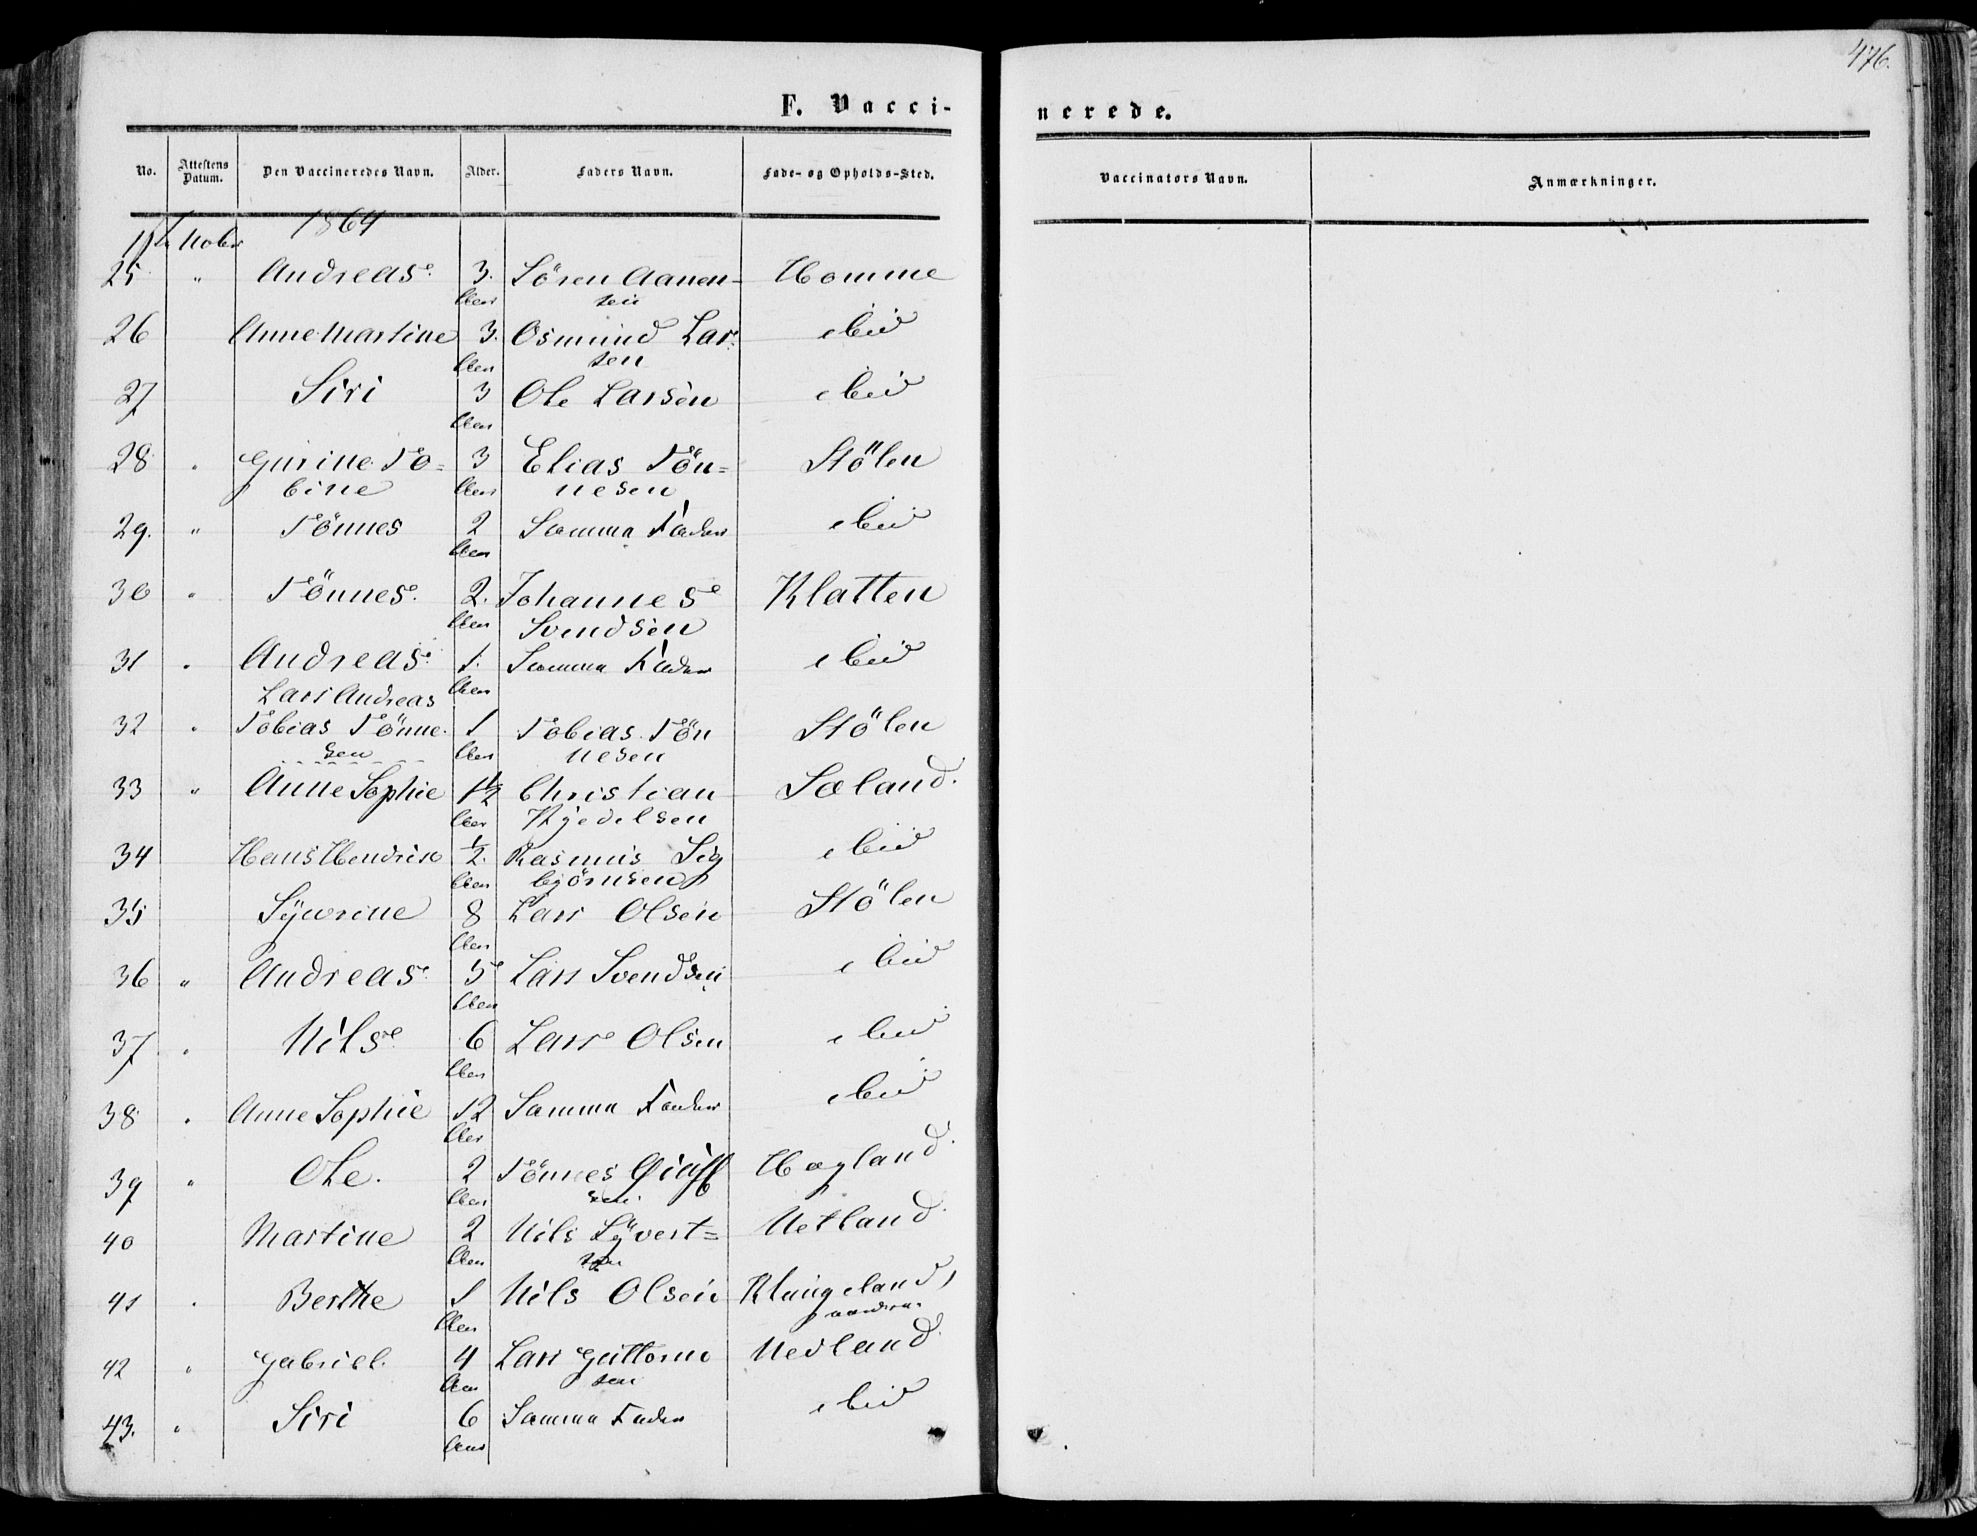 476.
F. Vacci-
nerede.
No. Attestens Datum. Den Vaccineredes Navn. Alder. Faders Navn. Føde- og Opholds-Sted. Vaccinators Navn. Anmærkninger.
Nobr 1864
25 " Andreas 3 Sören Aanen- Homme
Aar sen
26 Anne Martine 3. Osmund Lar- ibid
Aar sen
27 Siri 3 Ole Larsen ibid
Aar
28 " Gurine To= 3 Elias Tön= Stölen
bine Aar nesen
29. " Tönnes 2 Samma Fader ibid
Aar
30 " Tönnes. 2. Johannes Klatten
Aar Svendsen
31 " Andreas 1. Samma Fader ibid
Lars Andreas Aar
32 " Tobias Tönne- 1 Tobias Tön Stölen
sen Aar nesen
33 " Anne Sophie 1½ Christian Sæland.
Aar Kjedelsen
34 Hans Hendrik ½. Rasmus Sig ibid
Aar björnsen
35 Syvrine 8 Lars Olsen Stölen
Aar
36 " Andreas 5 Lars Svendsen ibid
Aar
37 " Nils 6 Lars Olsen ibid
Aar
38 " Anne Sophie 12 Samma Fader ibid
Aar
39 " Ole. 2 Tönnes Hægland.
Aar sen
40 Martine 2 Nils Syvert= Netland.
Aar sen
41 " Berthe 1 Nils Olsen Klungeland,
Aar
42 " Gabriel. 4 Lars Guttorm Nedland.
Aar sen
43. " Siri 6 Samma Fader ibid
Aar